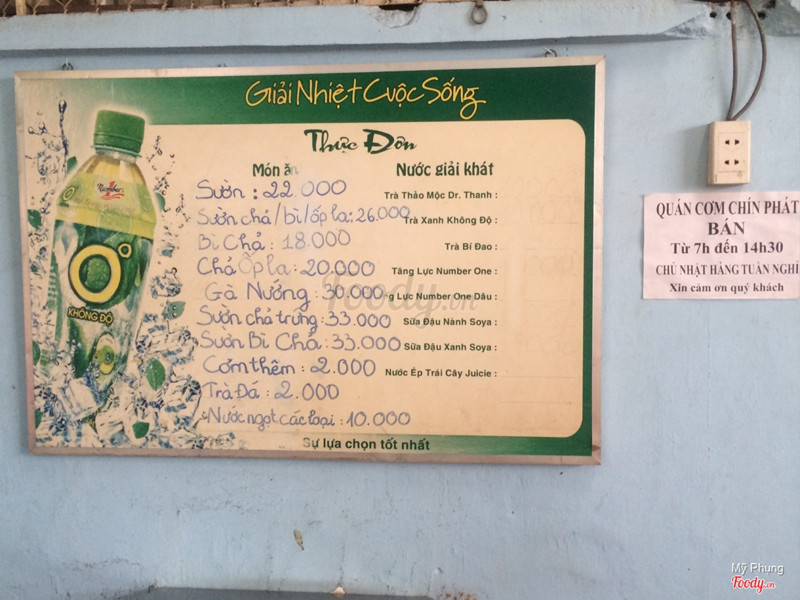 Giải Nhiệt Cuộc Sống
Thực Đơn
Món ăn
Nước giải khát
Sườn : 22.000
Sườn chả/bì/ốp la: 26.000
Bì Chả : 18.000
Chả Ốp la : 20.000
Gà Nướng : 30.000
Sườn chả trứng: 33.000
Sườn Bì Chả : 33.000
Cơm thêm : 2.000
Trà Đá : 2.000
Nước ngọt các loại : 10.000
Trà Thảo Mộc Dr. Thanh :
Trà Xanh Không Độ :
Trà Bí Đao :
Tăng Lực Number One :
ng Lực Number One Dâu :
Sữa Đậu Nành Soya :
Sữa Đậu Xanh Soya :
Nước Ép Trái Cây Juicie :
Sự lựa chọn tốt nhất
Number 1
0°
KHÔNG ĐỘ
QUÁN CƠM CHÍN PHÁT
BÁN
Từ 7h đến 14h30
CHỦ NHẬT HÀNG TUẦN NGHỈ
Xin cảm ơn quý khách
Foody.vn
Mỹ Phung
Foody.vn